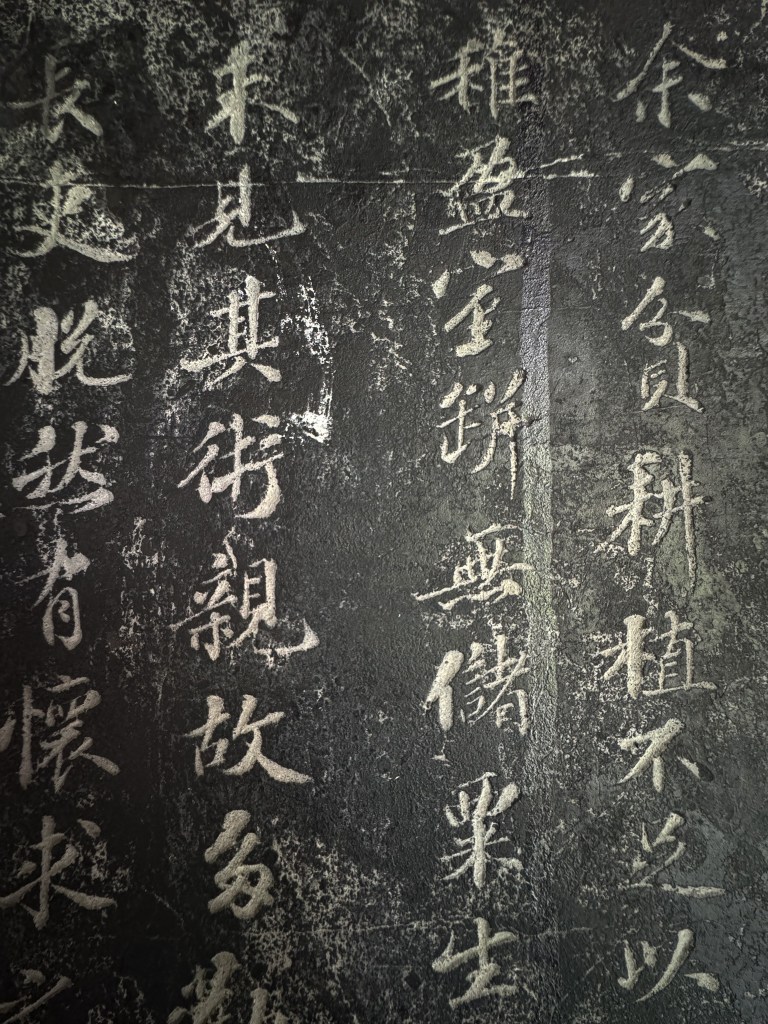 余家貧耕植不足以
稚盈室缾無儲粟生
未見其術親故多勸
長吏脫然有懷求之